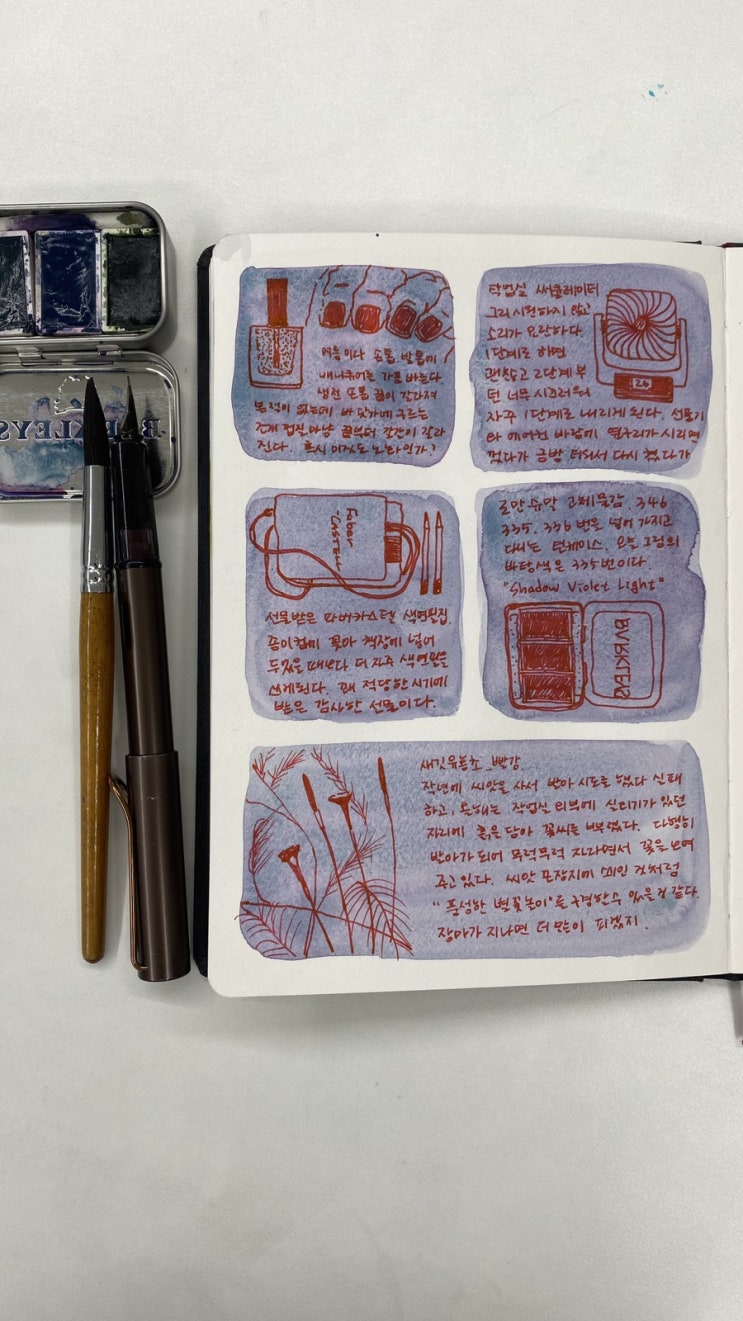 여름이나 손톱, 발톱에
매니큐어를 가끔 바른다.
생전 손톱 끝이 갈라져
본적이 없는데 바닷가에 구르는
조개 껍질마냥 끝부터 갈갈이 갈라
진다. 혹시 이것도 노화인가?
작업실 써큘레이터
그리 시원하지 않고
소리가 요란하다.
1단계로 하면
괜찮고 2단계부
턴 너무 시끄러워
자꾸 1단계로 내리게 된다. 선풍기
와 에어컨 바람에 옆구리가 시리면
껐다가 금방 더워서 다시 켰다가
26
Faber
-Castell
선물받은 파버카스텔 색연필집.
종이컵에 꽂아 책장에 넣어
두었을 때보다 더 자주 색연필을
쓰게된다. 꽤 적당한 시기에
받은 감사한 선물이다.
로만슈말 고체물감. 346
335. 336 번을 넣어 가지고
다니는 틴케이스. 오늘 그림의
바탕색은 335번이다.
"Shadow Violet Light"
새깃유홍초_빨강
작년에 씨앗을 사서 발아 시도를 했다 실패
하고, 올해는 작업실 외부에 실외기가 있던
자리에 흙을 담아 꽃씨를 뿌렸다. 다행히
발아가 되어 무럭무럭 자라면서 꽃을 보여
주고 있다. 씨앗 포장지에 써인 것처럼
"풍성한 별꽃놀이"를 구경할 수 있을 것 같다.
장마가 지나면 더 많이 피겠지.